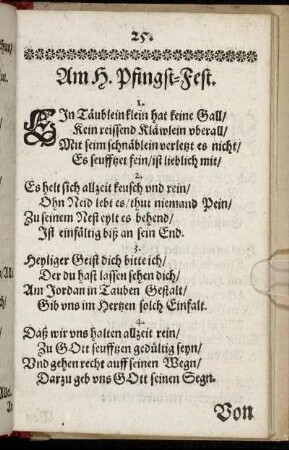 25.
Am H. Pfingst-Fest.
1.
EIn Täublein klein hat keine Gall/
Kein reissend Kläwlein vberall/
Mit seim schnäblein verletzt es nicht/
Es seufftzet fein/ist lieblich mit/
2.
Es helt sich allzeit keusch vnd rein/
Ohn Neid lebt es/thut niemand Pein/
Zu seinem Nest eylt es behend/
Ist einfältig biß an sein End.
3.
Heyliger Geist dich bitte ich/
Der du hast lassen sehen dich/
Am Jordan in Tauben Gestalt/
Gib vns im Hertzen solch Einfalt.
4.
Daß wir vns halten allzeit rein/
Zu GOtt seufftzen gedültig seyn/
Vnd gehen recht auff seinen Wegn/
Darzu geb vns GOtt seinen Segn.
Von